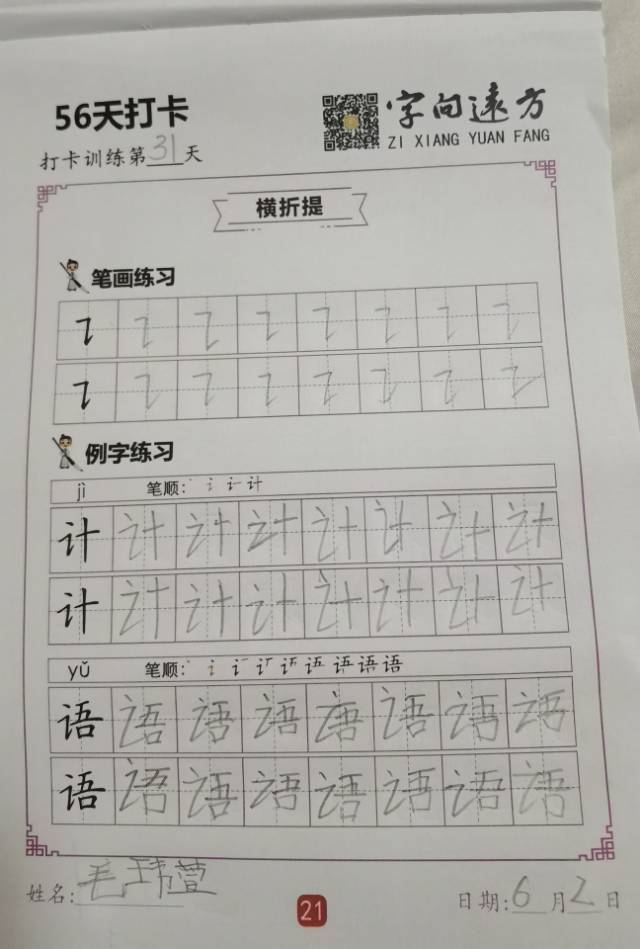 56天打卡
字向远方
ZI XIANG YUAN FANG
打卡训练第31天
横折提
笔画练习
㇊ ㇊ ㇊ ㇊ ㇊ ㇊ ㇊ ㇊
㇊ ㇊ ㇊ ㇊ ㇊ ㇊ ㇊ ㇊
例字练习
jì 笔顺: 计
计 计 计 计 计 计 计 计
计 计 计 计 计 计 计 计
yǔ 笔顺: 语
语 语 语 语 语 语 语 语
语 语 语 语 语 语 语 语
姓名: 毛玮萱
21
日期: 6月2日